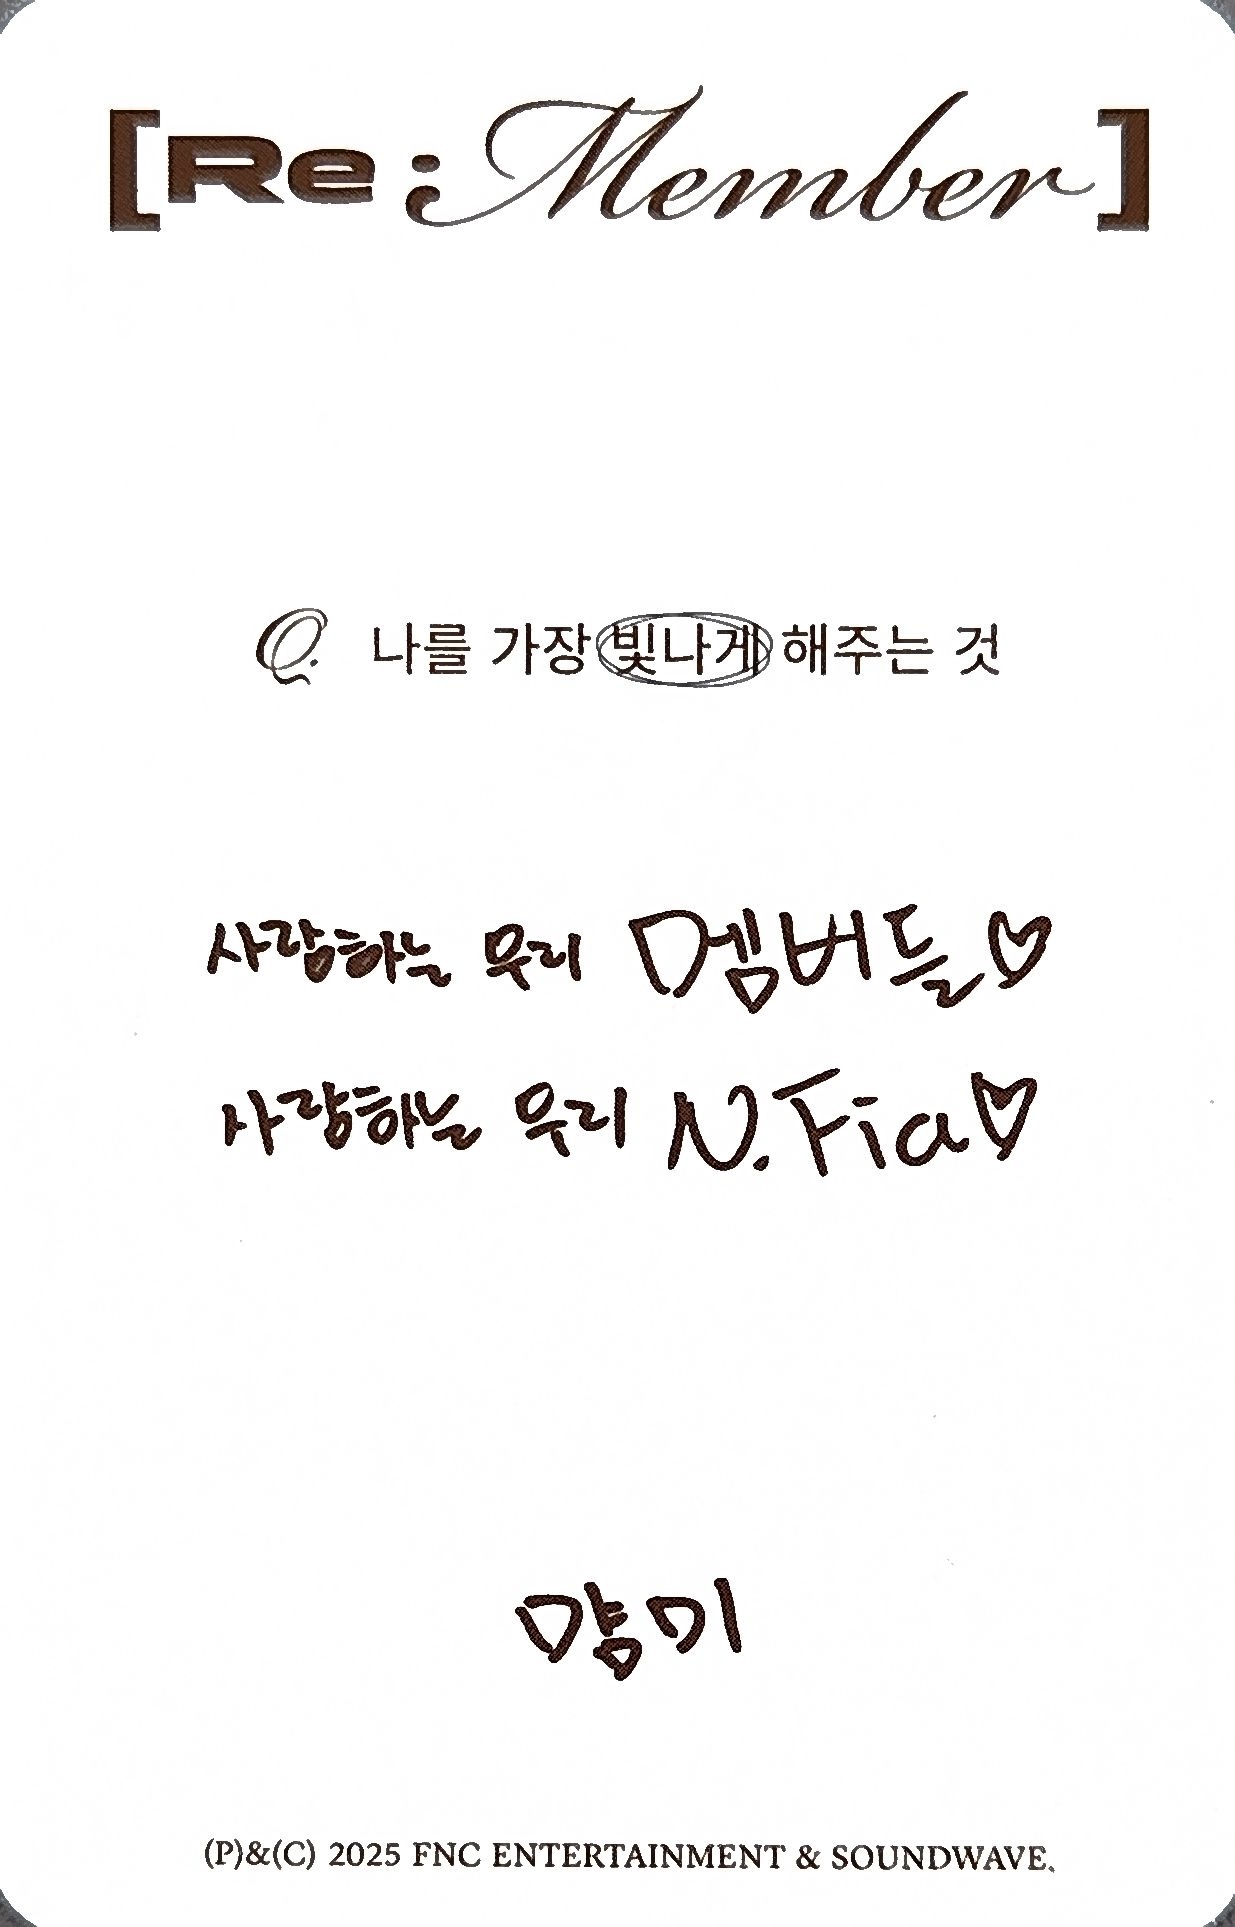 [Re;Member]
Q. 나를 가장 빛나게 해주는 것
사랑하는 우리 멤버들♡
사랑하는 우리 N.Fia♡
먕미
(P)&(C) 2025 FNC ENTERTAINMENT & SOUNDWAVE.